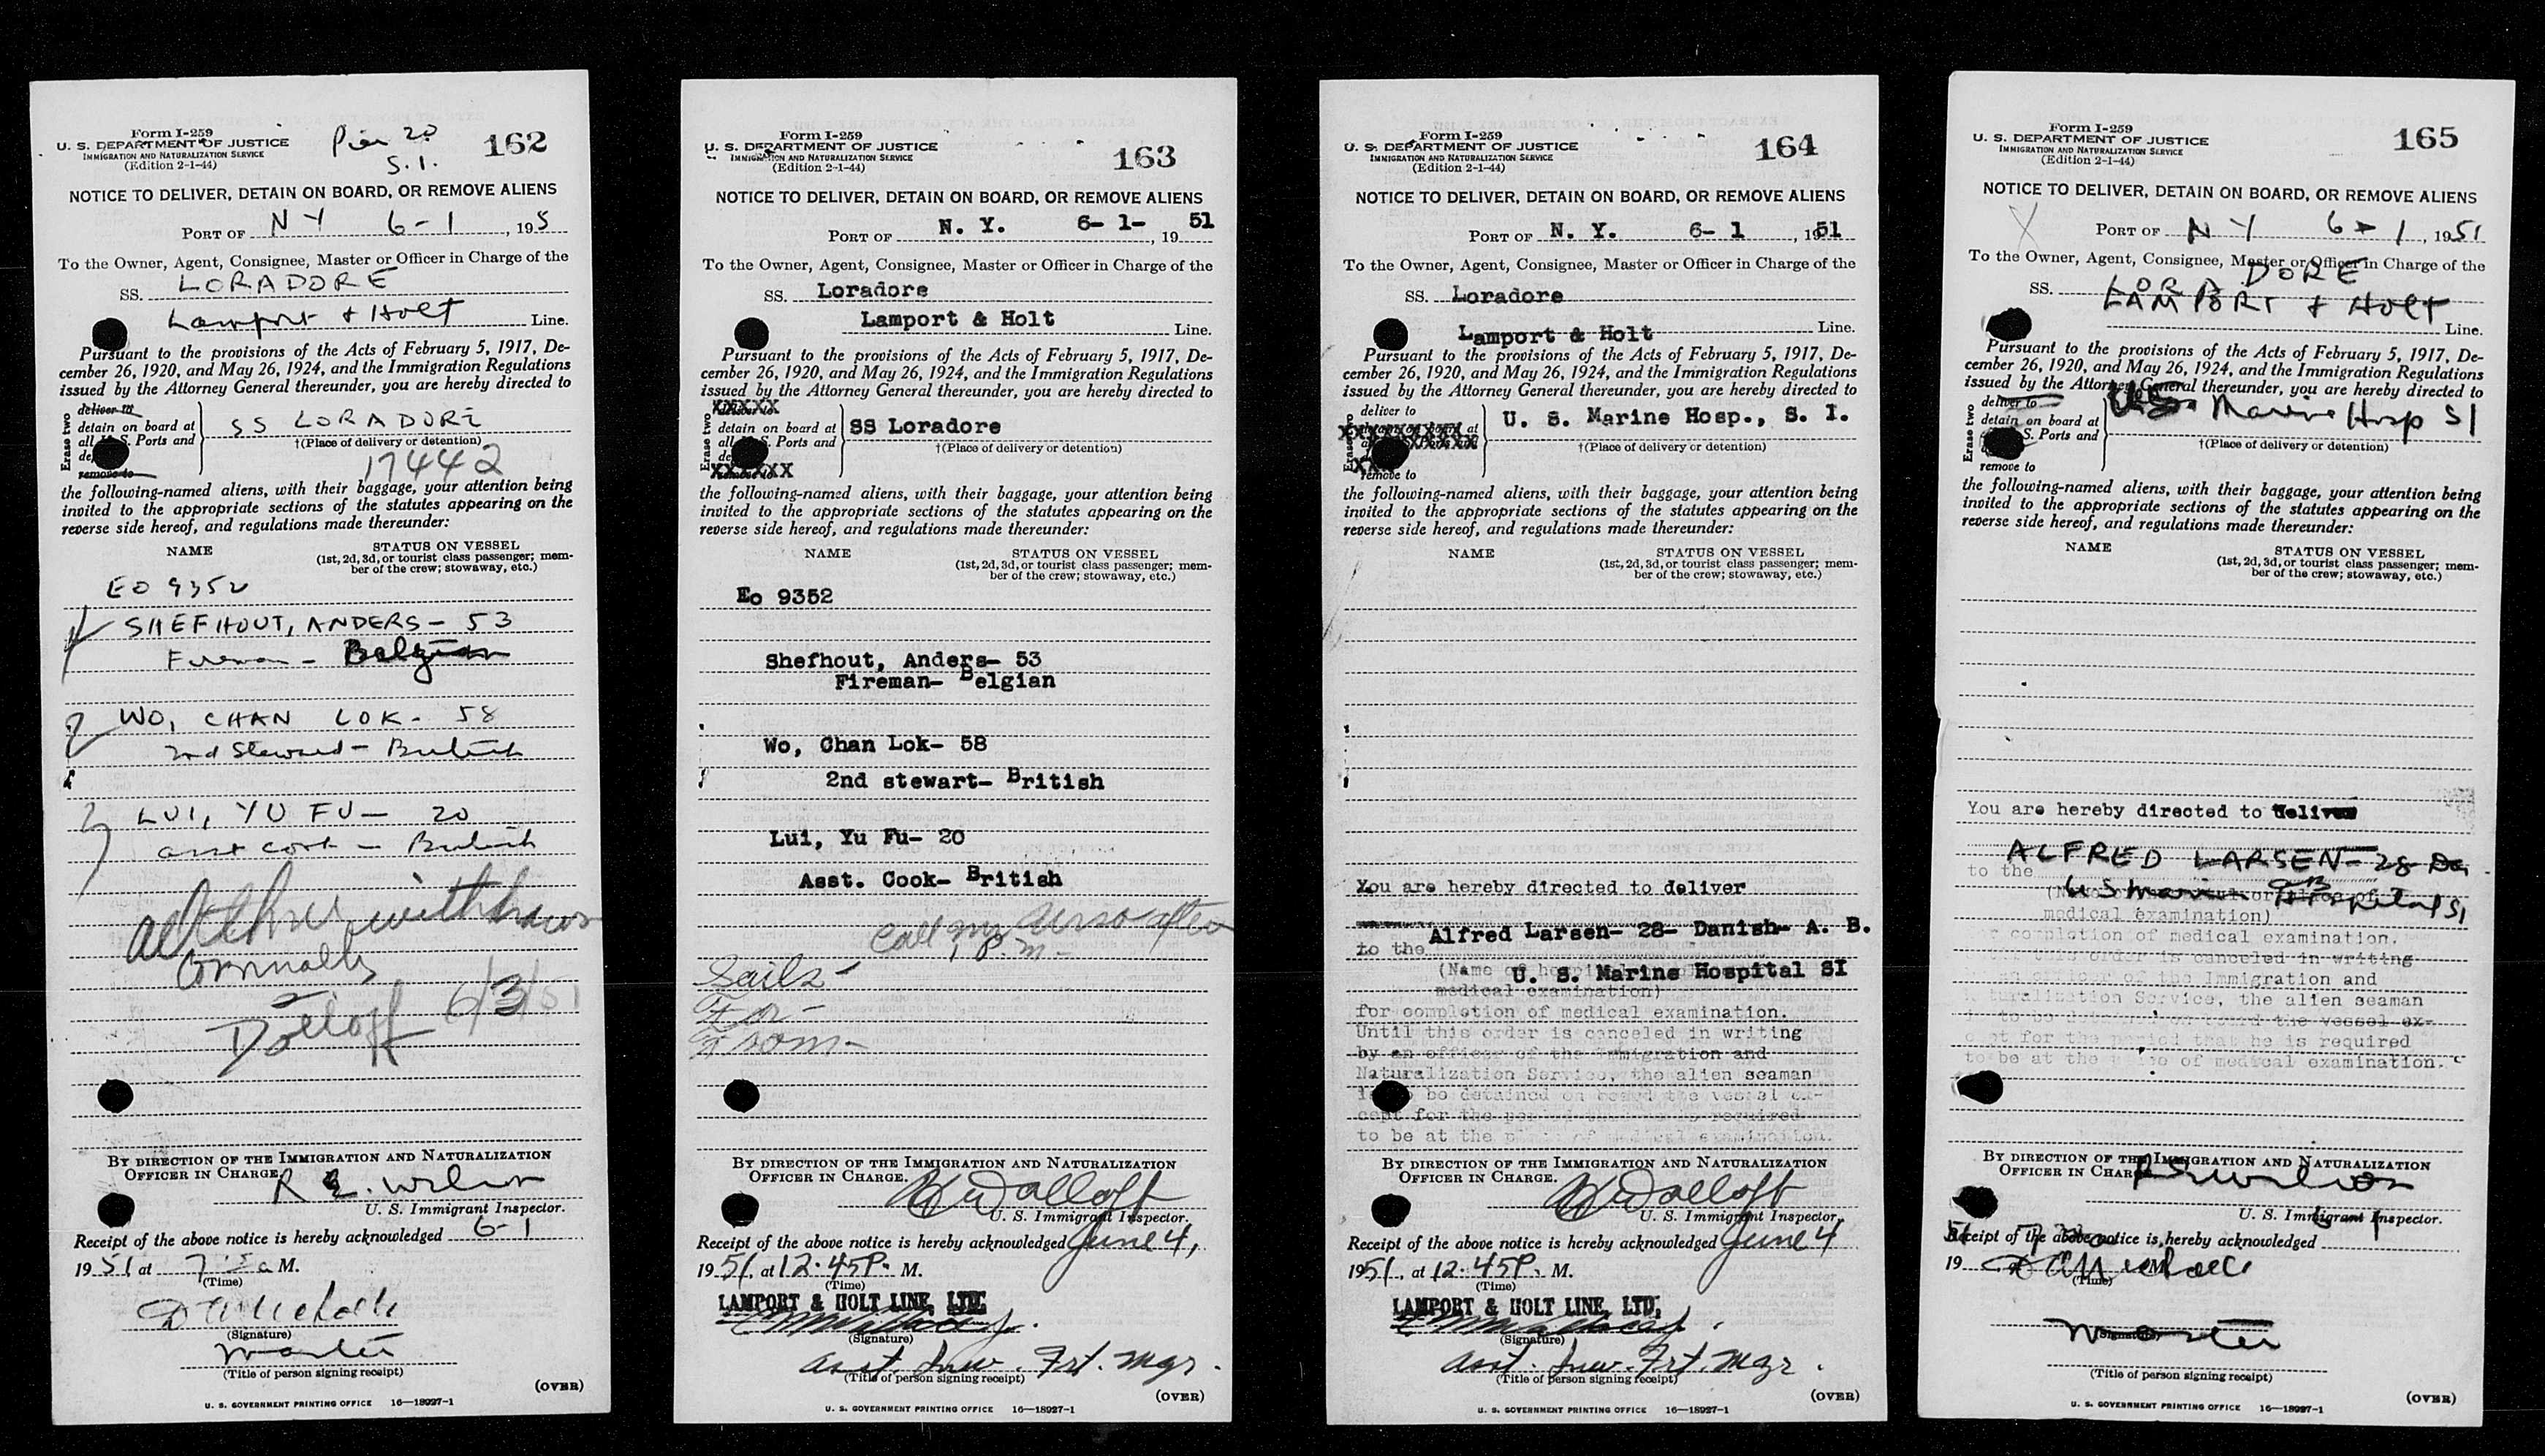 Form I-259
U. S. DEPARTMENT OF JUSTICE
IMMIGRATION AND NATURALIZATION SERVICE
(Edition 2-1-44)
Pier 20
S. I.
162
NOTICE TO DELIVER, DETAIN ON BOARD, OR REMOVE ALIENS
PORT OF N Y 6-1, 195
To the Owner, Agent, Consignee, Master or Officer in Charge of the
SS. LORADORE
Lamport + Holt Line.
Pursuant to the provisions of the Acts of February 5, 1917, De-
cember 26, 1920, and May 26, 1924, and the Immigration Regulations
issued by the Attorney General thereunder, you are hereby directed to
Erase two
deliver to
detain on board at
all U. S. Ports and
remove to
SS LORADORE
†(Place of delivery or detention)
17442
the following-named aliens, with their baggage, your attention being
invited to the appropriate sections of the statutes appearing on the
reverse side hereof, and regulations made thereunder:
NAME
STATUS ON VESSEL
(1st, 2d, 3d, or tourist class passenger; mem-
ber of the crew; stowaway, etc.)
EO 9352
SHEFHOUT, ANDERS - 53
Fireman - Belgian
WO, CHAN LOK - 58
2nd Steward - British
LUI, YU FU - 20
asst cook - British
all three withdrawn
Dolloff 6/3/51
BY DIRECTION OF THE IMMIGRATION AND NATURALIZATION
OFFICER IN CHARGE.
R E. Wilson
U. S. Immigrant Inspector.
Receipt of the above notice is hereby acknowledged 6-1
1951 at 7 a M.
(Time)
(Signature)
Master
(Title of person signing receipt)
(OVER)
U. S. GOVERNMENT PRINTING OFFICE 16—18927-1
Form I-259
U. S. DEPARTMENT OF JUSTICE
IMMIGRATION AND NATURALIZATION SERVICE
(Edition 2-1-44)
163
NOTICE TO DELIVER, DETAIN ON BOARD, OR REMOVE ALIENS
PORT OF N. Y. 6- 1-, 19 51
To the Owner, Agent, Consignee, Master or Officer in Charge of the
SS. Loradore
Lamport & Holt Line.
Pursuant to the provisions of the Acts of February 5, 1917, De-
cember 26, 1920, and May 26, 1924, and the Immigration Regulations
issued by the Attorney General thereunder, you are hereby directed to
Erase two
XXXXX
detain on board at
all U. S. Ports and
XXXXXX
SS Loradore
†(Place of delivery or detention)
the following-named aliens, with their baggage, your attention being
invited to the appropriate sections of the statutes appearing on the
reverse side hereof, and regulations made thereunder:
NAME
STATUS ON VESSEL
(1st, 2d, 3d, or tourist class passenger; mem-
ber of the crew; stowaway, etc.)
Eo 9352
Shefhout, Anders- 53
Fireman- Belgian
Wo, Chan Lok- 58
2nd stewart- British
Lui, Yu Fu- 20
Asst. Cook- British
Call after
1 P. M-
Sails-
For-
From-
BY DIRECTION OF THE IMMIGRATION AND NATURALIZATION
OFFICER IN CHARGE.
U. S. Immigrant Inspector.
Receipt of the above notice is hereby acknowledged June 4,
1951, at 12.45 P. M.
(Time)
LAMPORT & HOLT LINE, LTD.
(Signature)
Asst. Inw. Frt. Mgr.
(Title of person signing receipt)
(OVER)
U. S. GOVERNMENT PRINTING OFFICE 16—18927-1
Form I-259
U. S. DEPARTMENT OF JUSTICE
IMMIGRATION AND NATURALIZATION SERVICE
(Edition 2-1-44)
164
NOTICE TO DELIVER, DETAIN ON BOARD, OR REMOVE ALIENS
PORT OF N. Y. 6- 1, 1951
To the Owner, Agent, Consignee, Master or Officer in Charge of the
SS. Loradore
Lamport & Holt Line.
Pursuant to the provisions of the Acts of February 5, 1917, De-
cember 26, 1920, and May 26, 1924, and the Immigration Regulations
issued by the Attorney General thereunder, you are hereby directed to
Erase two
deliver to
remove to
U. S. Marine Hosp., S. I.
†(Place of delivery or detention)
the following-named aliens, with their baggage, your attention being
invited to the appropriate sections of the statutes appearing on the
reverse side hereof, and regulations made thereunder:
NAME
STATUS ON VESSEL
(1st, 2d, 3d, or tourist class passenger; mem-
ber of the crew; stowaway, etc.)
You are hereby directed to deliver
Alfred Larsen- 28- Danish- A. B.
to the
U. S. Marine Hospital SI
medical examination)
for completion of medical examination.
Until this order is canceled in writing
by an officer of the Immigration and
Naturalization Service, the alien seaman
is to be detained on board the vessel ex-
cept for the period that he is required
to be at the place of medical examination.
BY DIRECTION OF THE IMMIGRATION AND NATURALIZATION
OFFICER IN CHARGE.
U. S. Immigrant Inspector.
Receipt of the above notice is hereby acknowledged June 4
1951, at 12.45 P. M.
(Time)
LAMPORT & HOLT LINE, LTD.
(Signature)
Asst. Inw. Frt. Mgr.
(Title of person signing receipt)
(OVER)
U. S. GOVERNMENT PRINTING OFFICE 16—18927-1
Form I-259
U. S. DEPARTMENT OF JUSTICE
IMMIGRATION AND NATURALIZATION SERVICE
(Edition 2-1-44)
165
NOTICE TO DELIVER, DETAIN ON BOARD, OR REMOVE ALIENS
X
PORT OF N Y 6-1, 1951
To the Owner, Agent, Consignee, Master or Officer in Charge of the
SS. LORADORE
LAMPORT + HOLT Line.
Pursuant to the provisions of the Acts of February 5, 1917, De-
cember 26, 1920, and May 26, 1924, and the Immigration Regulations
issued by the Attorney General thereunder, you are hereby directed to
Erase two
deliver to
detain on board at
S. Ports and
remove to
Marine Hosp SI
†(Place of delivery or detention)
the following-named aliens, with their baggage, your attention being
invited to the appropriate sections of the statutes appearing on the
reverse side hereof, and regulations made thereunder:
NAME
STATUS ON VESSEL
(1st, 2d, 3d, or tourist class passenger; mem-
ber of the crew; stowaway, etc.)
You are hereby directed to deliver
ALFRED LARSEN - 28 Da
to the
US Marine Hospital SI
medical examination)
completion of medical examination.
this order is canceled in writing
an officer of the Immigration and
Naturalization Service, the alien seaman
is to be detained on board the vessel ex-
cept for the period that he is required
to be at the place of medical examination.
BY DIRECTION OF THE IMMIGRATION AND NATURALIZATION
OFFICER IN CHARGE.
R E Wilson
U. S. Immigrant Inspector.
Receipt of the above notice is hereby acknowledged
19
(Time)
Master
(Signature)
(Title of person signing receipt)
(OVER)
U. S. GOVERNMENT PRINTING OFFICE 16—18927-1